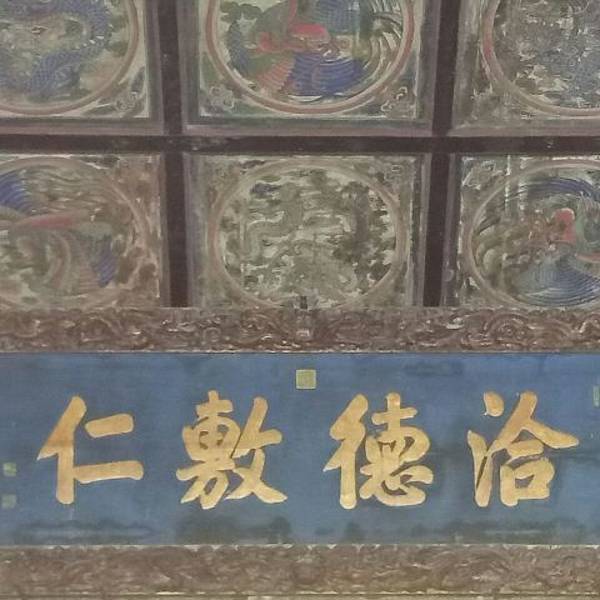 洽德敷仁